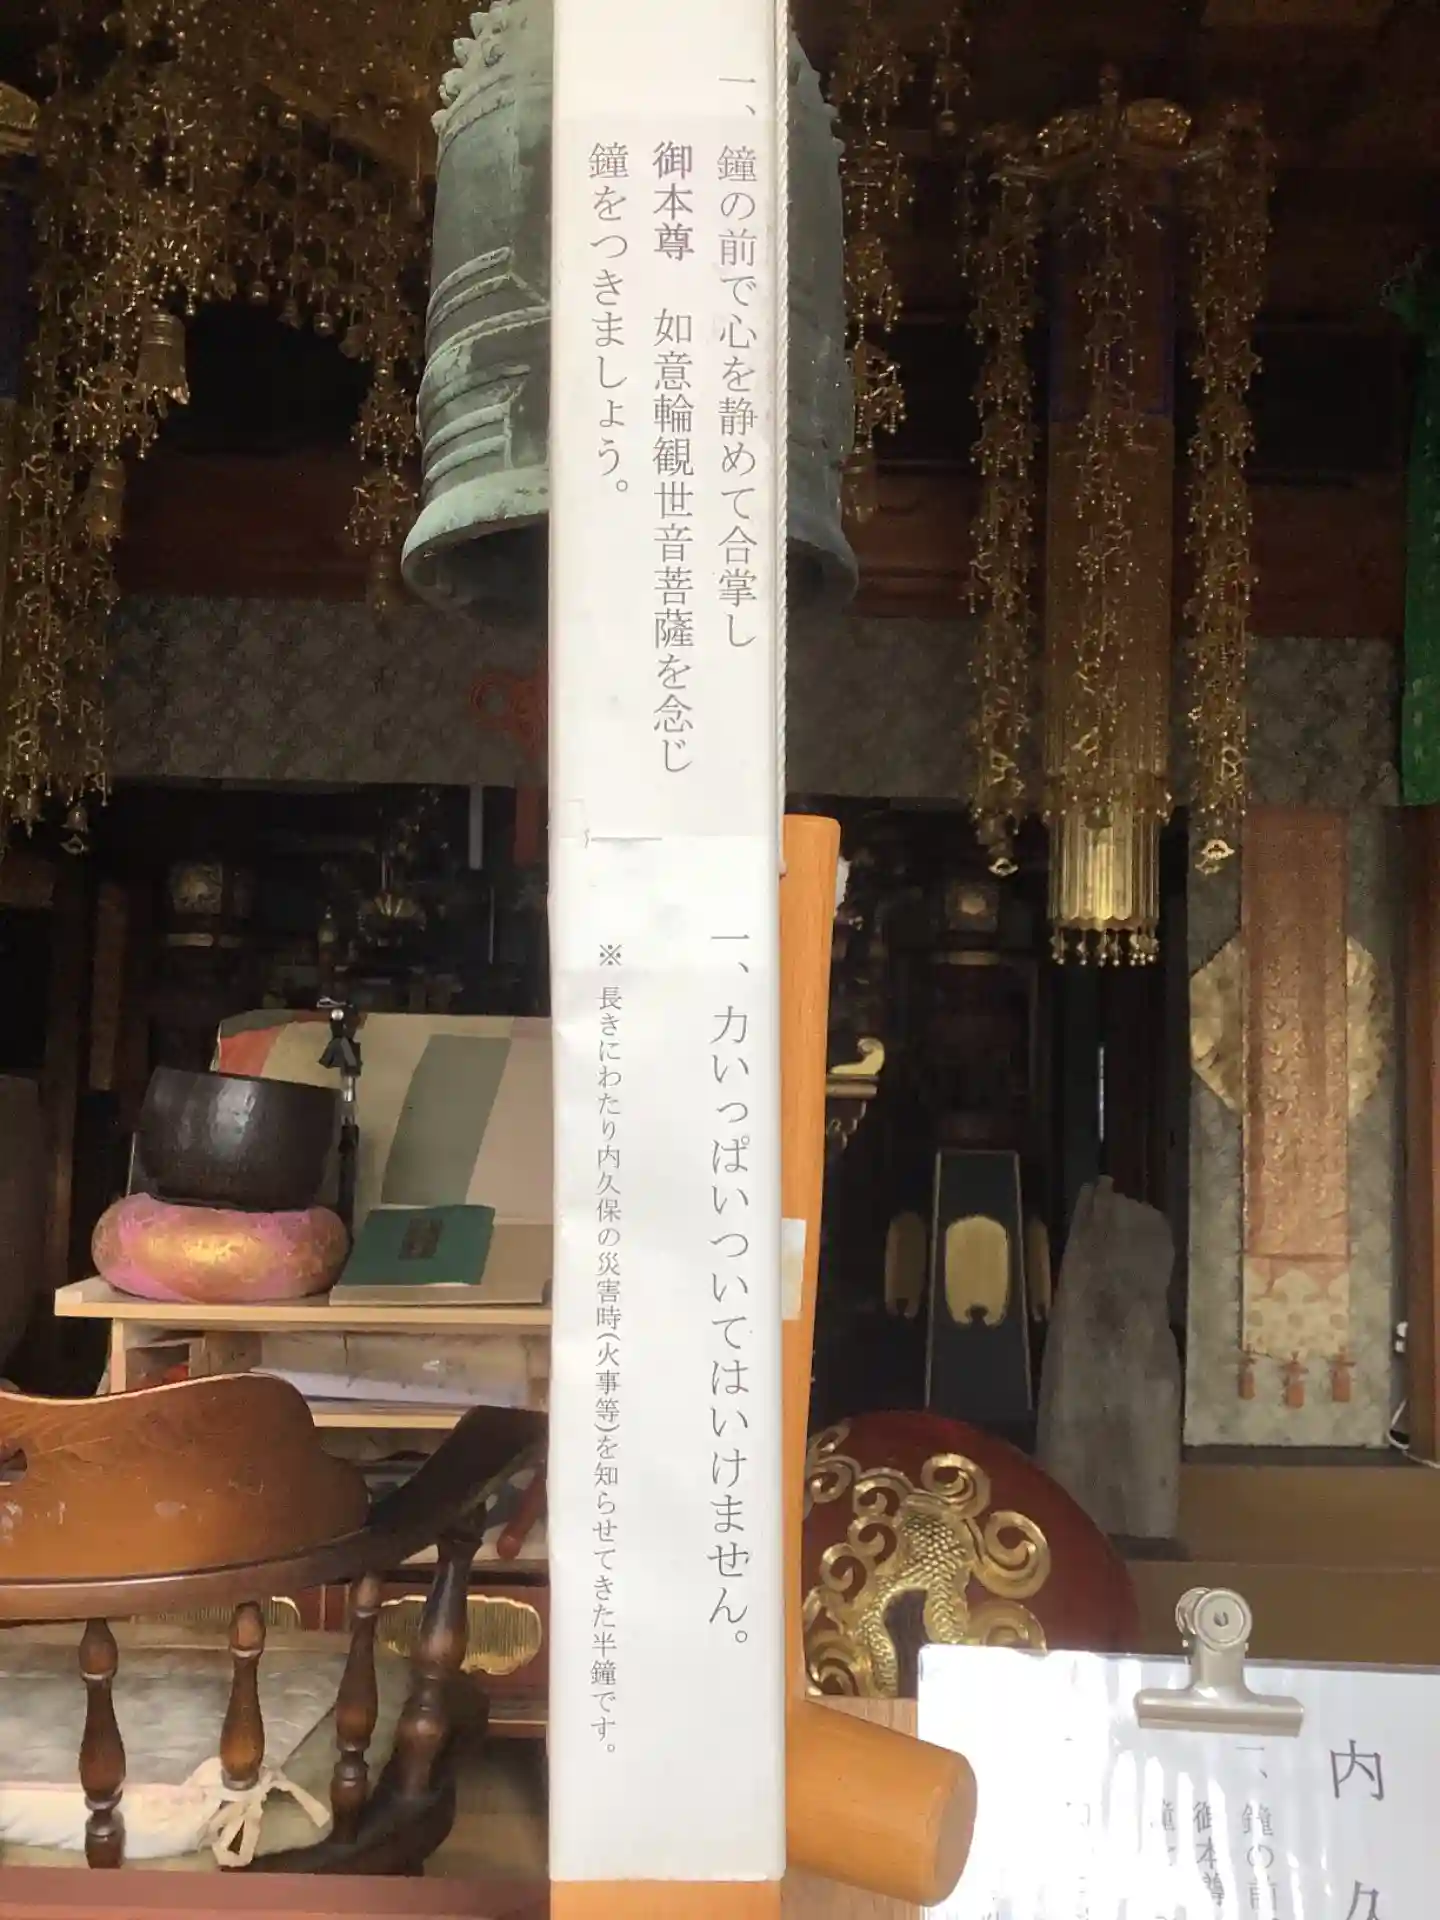 一、鐘の前で心を静めて合掌し
御本尊　如意輪観世音菩薩を念じ
鐘をつきましょう。
一、力いっぱいついてはいけません。
※ 長きにわたり内久保の災害時(火事等)を知らせてきた半鐘です。
内久
一、鐘の前
御本尊